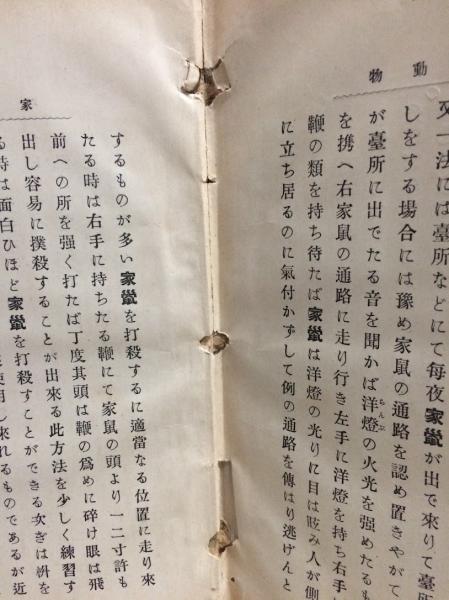 動物
又一法には臺所などにて毎夜家鼠が出で來りて臺
しをする場合には豫め家鼠の通路を認め置きやがて
が臺所に出でたる音を聞かば洋燈の火光を強めたるも
を携へ右家鼠の通路に走り行き左手に洋燈を持ち右手
鞭の類を持ち待たば家鼠は洋燈の光りに目は眩み人が側
に立ち居るのに氣付かずして例の通路を傳はり逃げんと
家
するものが多い家鼠を打殺するに適當なる位置に走り來
たる時は右手に持ちたる鞭にて家鼠の頭より一二寸許も
前への所を強く打たば丁度其頭は鞭の爲めに碎け眼は飛
出し容易に撲殺することが出來る此方法を少しく練習す
る時は面白ひほど家鼠を打殺すことができる次ぎは枡を
使用し來れるものであるが近